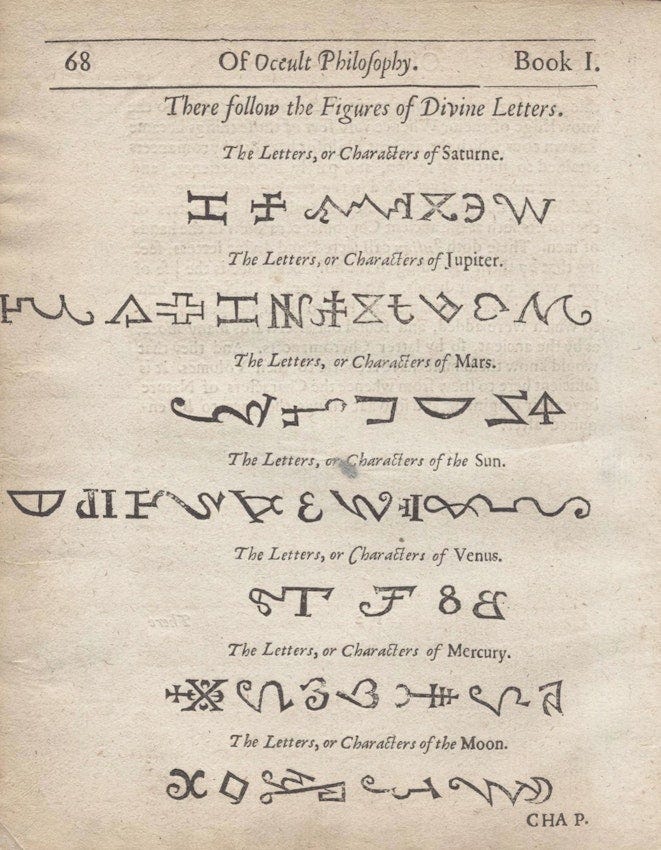 68 Of Occult Philosophy. Book I.
There follow the Figures of Divine Letters.
The Letters, or Characters of Saturne.
The Letters, or Characters of Jupiter.
The Letters, or Characters of Mars.
The Letters, or Characters of the Sun.
The Letters, or Characters of Venus.
The Letters, or Characters of Mercury.
The Letters, or Characters of the Moon.
CHAP.